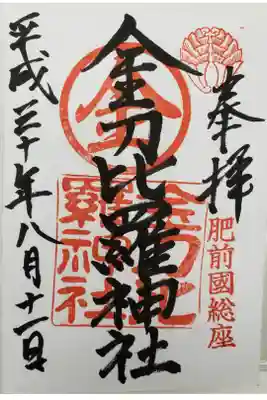 奉拝
肥前國総座
金刀比羅神社
金
金刀比羅神社
平成三十年八月十一日